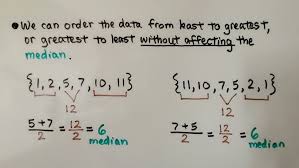 • We can order the data from least to greatest,
or greatest to least without affecting the
median.
{1, 2, 5, 7, 10, 11} {11, 10, 7, 5, 2, 1}
12 12
5+7/2 = 12/2 = 6 7+5/2 = 12/2 = 6
median median